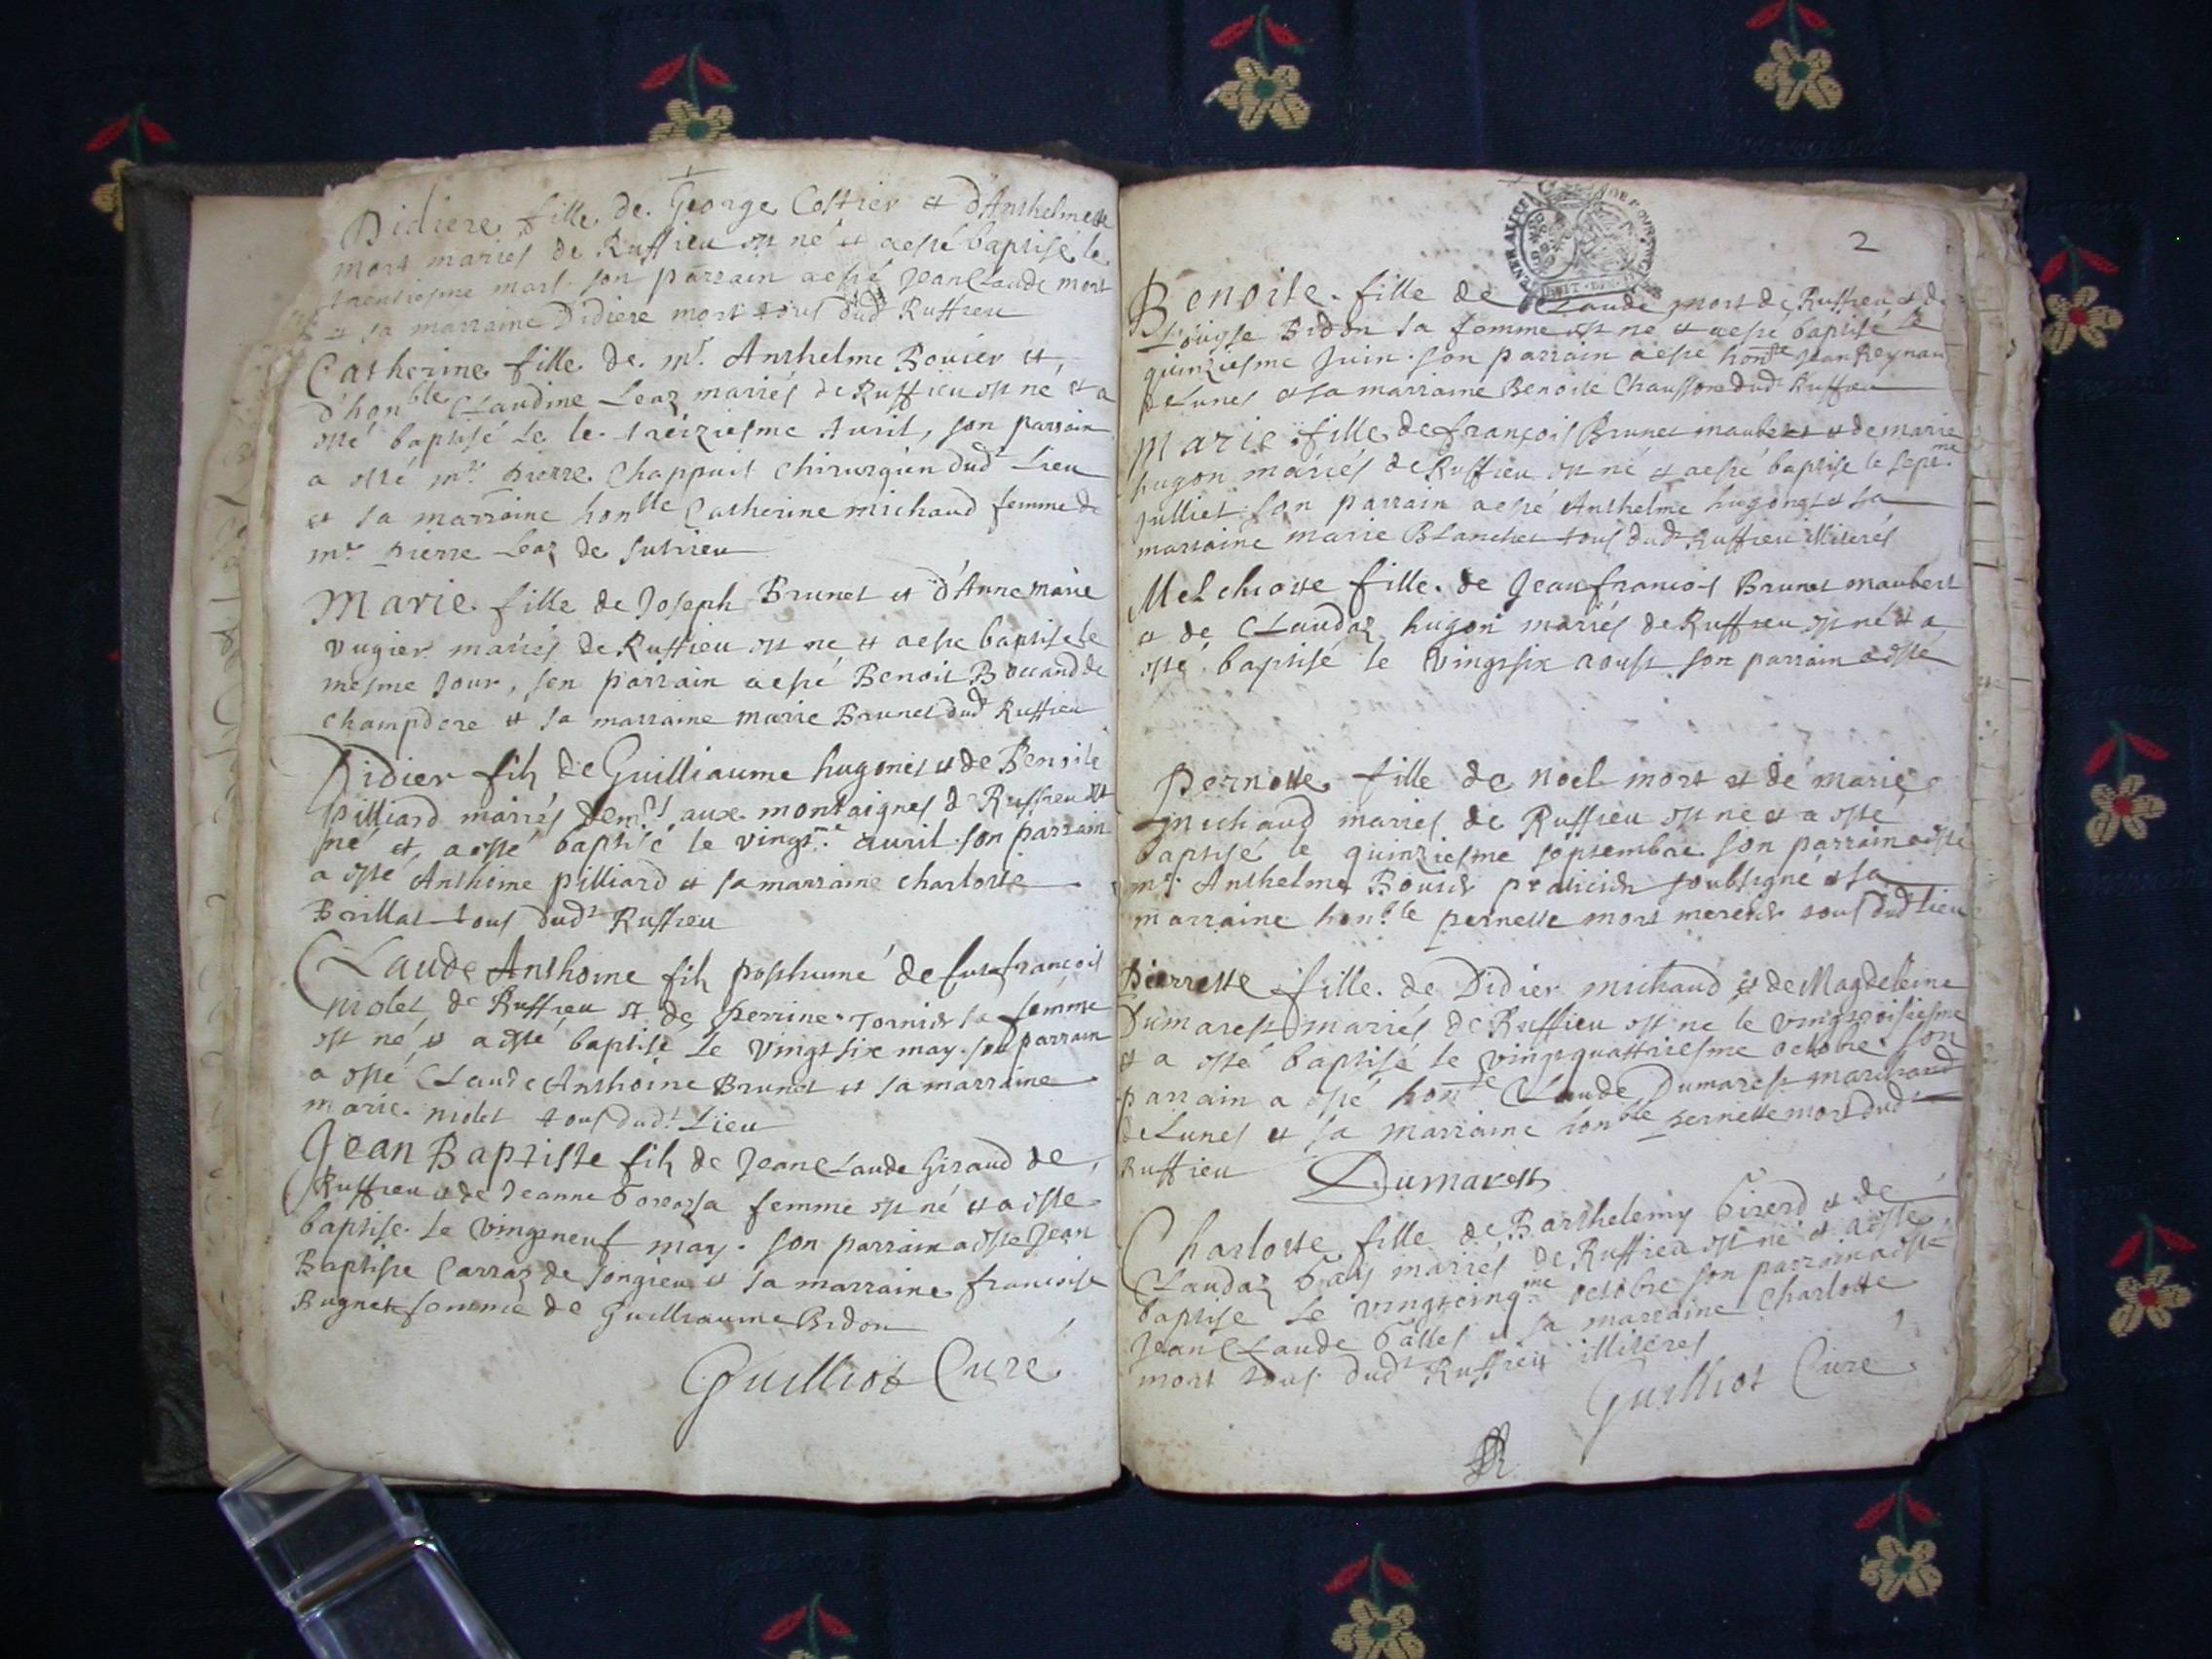 Didiere fille de George Costier et d'Anthelmette
mort mariés de Ruffieu est né et a esté baptisé le
trentiesme mars son parrain a esté Jean Claude mort
et sa marraine Didiere mort tous dudt Ruffieu
Catherine fille de mr. Anthelme Bouier et
d'honble Claudine Leaz mariés de Ruffieu est né et a
esté baptisé le le treiziesme Avril, son parrain
a esté mr. pierre Chappuit Chirurgien dudt Lieu
et sa marraine honble Catherine michaud femme de
mr pierre Leaz de Sutrieu
Marie fille de Joseph Brunet et d'Anne marie
vugier mariés de Ruffieu est né et a esté baptisé le
mesme jour, son parrain a esté Benoit Bouand de
champdore et sa marraine marie Brunet dudt Ruffieu
Didier filz de Guilliaume hugonet et de Benoite
pilliard mariés demts aux montaignes de Ruffieu est
né et a esté baptisé le vingtme avril son parrain
a esté Antheme pilliard et sa marraine charlotte
Brillat tous dudt Ruffieu
Claude Anthoine filz posthume de fut françois
niolet de Ruffieu et de perrine Tornier sa femme
est né et a esté baptisé le vingt six may son parrain
a esté Claude Anthoine Brunet et sa marraine
marie niolet tous dudt Lieu
Jean Baptiste filz de Jean Claude Giraud de
Ruffieu et de Jeanne sa femme est né et a esté
baptisé le vingt neuf may. son parrain a esté Jean
Baptiste Carraz de Songieu et sa marraine françoise
Bugnet femme de Guilliaume Bidon
Guilliot Curé
2
Benoite fille de Claude mort de Ruffieu et de
Louise Bidon sa femme est né et a esté baptisé le
quinziesme Juin son parrain a esté honble Jean Reynau
de Lunes et sa marraine Benoite Chausson dudt Ruffieu
Marie fille de françois Brunet maubert et de marie
hugon mariés de Ruffieu est né et a esté baptisé le septme
Julliet son parrain a esté Anthelme hugonet et sa
marraine marie Blanchet tous dudt Ruffieu illiterés
Melchiotte fille de Jean francois Brunet maubert
et de Claudaz hugon mariés de Ruffieu est né et a
esté baptisé le vingt six aoust son parrain a esté
Pernette fille de noel mort et de marie
michaud mariés de Ruffieu est né et a esté
baptisé le quinziesme septembre son parrain a esté
mr. Anthelme Bouier praticien soubsigné et sa
marraine honble pernette mort tous dudt Lieu
Pierrette fille de Didier michaud et de Magdeleine
Dumarest mariés de Ruffieu est né le vingtroisiesme
et a esté baptisé le vingtquattriesme octobre son
parrain a esté honble Claude Dumarest marchand
de Lunes et sa marraine honble pernette mort dudt
Ruffieu
Dumarest
Charlotte fille de Barthelemy Girerd et de
Claudaz mariés de Ruffieu est né et a esté
baptisé le vingtcinqme octobre son parrain a esté
Jean Claude et sa marraine Charlotte
mort tous dudt Ruffieu illiterés
Guilliot Curé